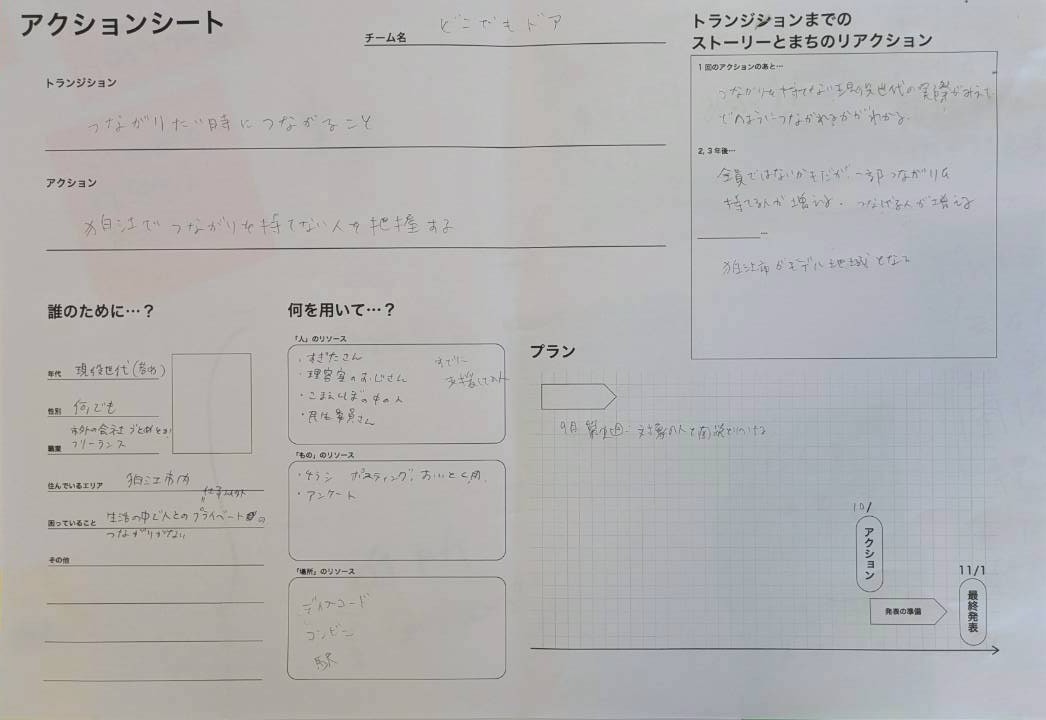 アクションシート
チーム名 どこでもドア
トランジション
つながりたい時につながること
アクション
狛江でつながりを持てない人を把握する
誰のために…？
年代 現役世代(若め)
性別 何でも
市外の会社
職業 フリーランス
住んでいるエリア 狛江市内
仕事以外
困っていること 生活の中で人とのプライベートの
つながりがない
その他
何を用いて…？
「人」のリソース
・すぎたさん
・理容室のおじさん
・こまえくぼの中の人
・民生委員さん
すでに
支援してる人
「もの」のリソース
・チラシ ポスティング、おいとく用
・アンケート
「場所」のリソース
ディスコード
コンビニ
駅
トランジションまでの
ストーリーとまちのリアクション
1回のアクションのあと…
つながりを持てない現役世代の実際がみえて
どのようにつながれるかがわかる。
2, 3年後…
全員ではないかもだが、一部つながりを
持てる人が増える。つなげる人が増える
…
狛江市がモデル地域となって
プラン
9月 第1週: 対象の人と面談
10/
アクション
発表の準備
11/1
最終発表